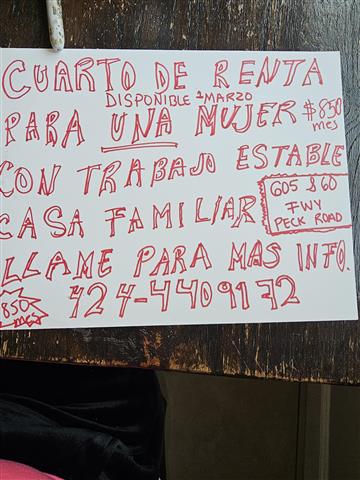 CUARTO DE RENTA
DISPONIBLE 1 MARZO
PARA UNA MUJER $850
mes
CON TRABAJO ESTABLE
CASA FAMILIAR
605 & 60
FWY
PECK ROAD
LLAME PARA MAS INFO.
850
mes
424-4409172